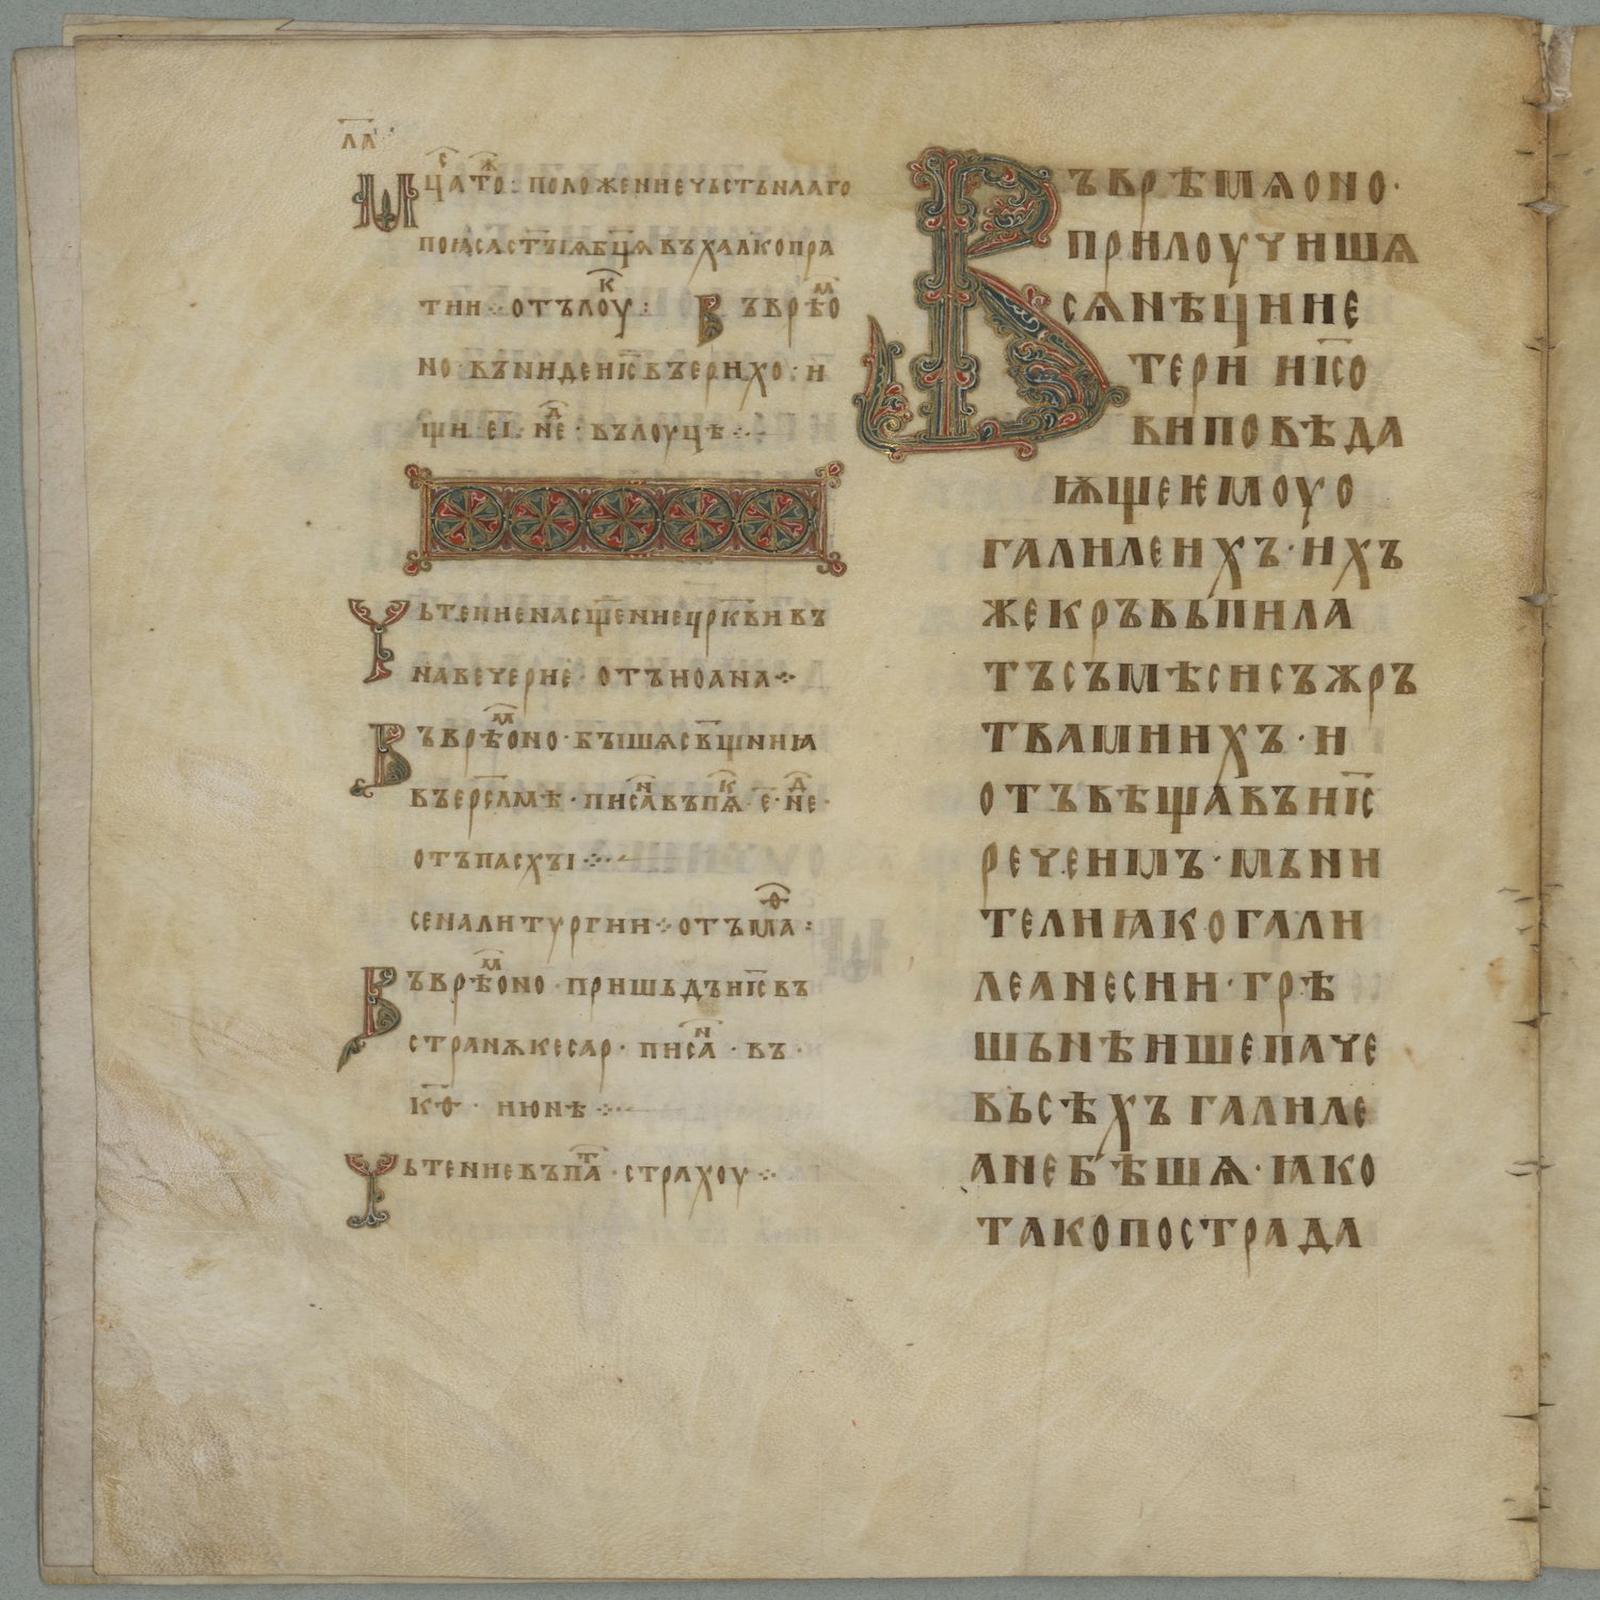 л҃а
Мц҃а то҃ж҃ : положениечьстьнааго
поꙗсаст҃ыꙗбц҃ѧ въхалкопра
тии ⁘ отълоу҃к : Въврѣ҃мо
но · въниденіс҃въерихо : и
щи є҃і · н҃дє · вълоуцѣ ⁘
Чьтениенасщ҃ениецр҃квивъ
навечерне · отъиоана ⁘
Въврѣ҃моно · бꙑшѧсв҃щиниꙗ
въерс҃лмѣ · пис҃навъпѧ҃к · є · н҃дє ·
отъпасхꙑ ⁘
сеналитургии ⁘ отъма҃ѳ :
Въврѣ҃моно · пришьдъніс҃въ
странѫкесар · пис҃на · въ ·
к҃ѳ · июнѣ ⁘
Чьтениевъпа҃т · страхоу ⁘
Въврѣмѧоно ·
прилоучишѧ
сѧнѣциие
тери ніс҃о
виповѣда
ѭщеѥмоуо
галилеихъ · ихъ
жекръвьпила
тъсъмѣсисъжръ
твамиихъ · и
отъвѣщавъніс҃
речеимъ · мьни
телиꙗкогали
леанесии · грѣ
шьнѣишепаче
вьсѣхъ галиле
анебѣшѧ · ꙗко
такопострада